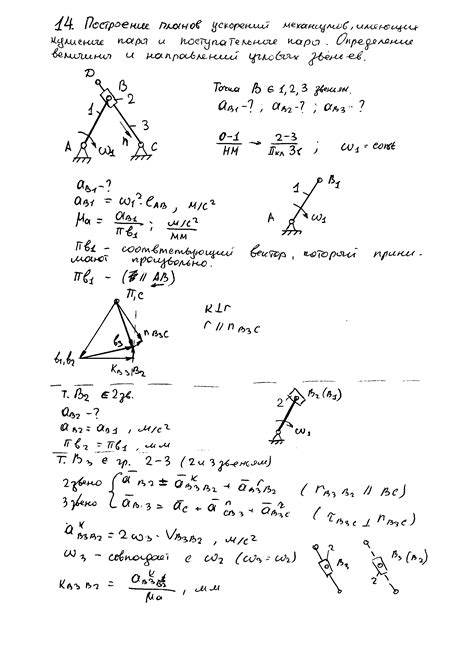 14. Построение планов ускорений механизмов, имеющих
кулисные пары и поступательные пары. Определение
величины и направлений угловых звеньев.
D
B
2
1
3
n
A
ω₁
C
Точка B ∈ 1, 2, 3 звеням.
aB1 - ?, aB2 - ? ; aB3 - ?
0-1 / НМ → 2-3 / II кл 3с ; ω₁ = const
aB1 - ?
aB1 = ω₁² · ℓAB , м/с²
μa = aB1 / πв1 ; м/с² / мм
1
B₁
A
ω₁
πв1 - соответствующий вектор, который прини-
мают произвольно.
πв1 - (// AB)
π, c
в3
nB3C
в1, в2
KB3B2
K ⊥ r
r // nB3C
т. B2 ∈ 2 зв.
aB2 - ?
aB2 = aB1 , м/с²
πв2 = πв1 , мм
2
B₂ (B₁)
т. B3 ∈ гр. 2-3 (2 и 3 звеньям)
2 звено { āB2 ± āᵏB3B2 + āʳB3B2 ( rB3B2 // BC)
3 звено { āB3 = āC + āⁿCB3 + āᵗB3C ( τB3C ⊥ nB3C)
aᵏB3B2 = 2ω3 · VB3B2 , м/с²
ω3 - совпадает с ω2 (ω3 = ω2)
KB3B2 = aᵏB3B2 / μa , мм
2
B₃
3
B₃ (B₂)
2